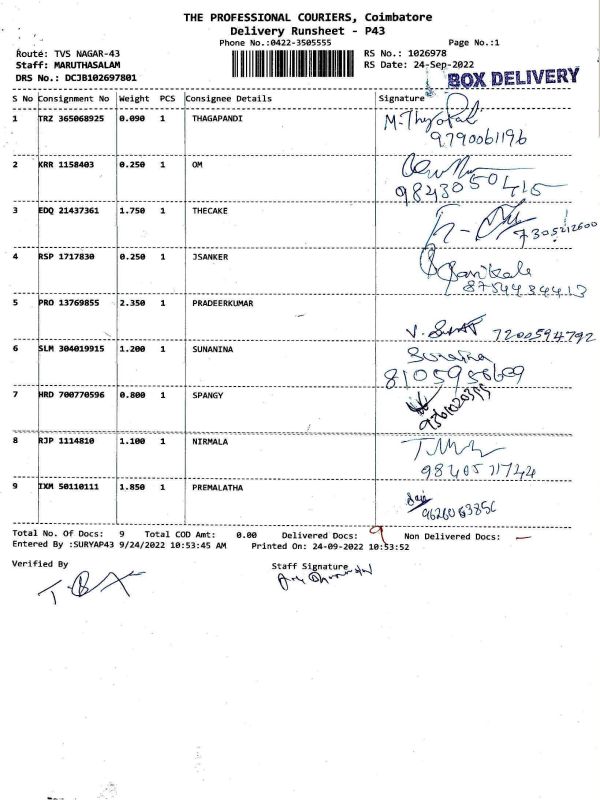 THE PROFESSIONAL COURIERS, Coimbatore
Delivery Runsheet - P43
Phone No.:0422-3505555 Page No.:1
Route: TVS NAGAR-43 RS No.: 1026978
Staff: MARUTHASALAM RS Date: 24-Sep-2022
DRS No.: DCJB102697801
BOX DELIVERY
S No Consignment No Weight PCS Consignee Details Signature
1 TRZ 365068925 0.090 1 THAGAPANDI
9790061196
2 KRR 1158403 0.250 1 OM
9843050415
3 EDQ 21437361 1.750 1 THECAKE
7305212600
4 RSP 1717830 0.250 1 JSANKER
8754434413
5 PRO 13769855 2.350 1 PRADEERKUMAR
7200594792
6 SLM 304019915 1.200 1 SUNANINA
Sunaina
7 HRD 700770596 0.800 1 SPANGY
8 RJP 1114810 1.100 1 NIRMALA
9 IXM 50110111 1.850 1 PREMALATHA
Total No. Of Docs: 9 Total COD Amt: 0.00 Delivered Docs: 9 Non Delivered Docs: —
Entered By :SURYAP43 9/24/2022 10:53:45 AM Printed On: 24-09-2022 10:53:52
Verified By Staff Signature